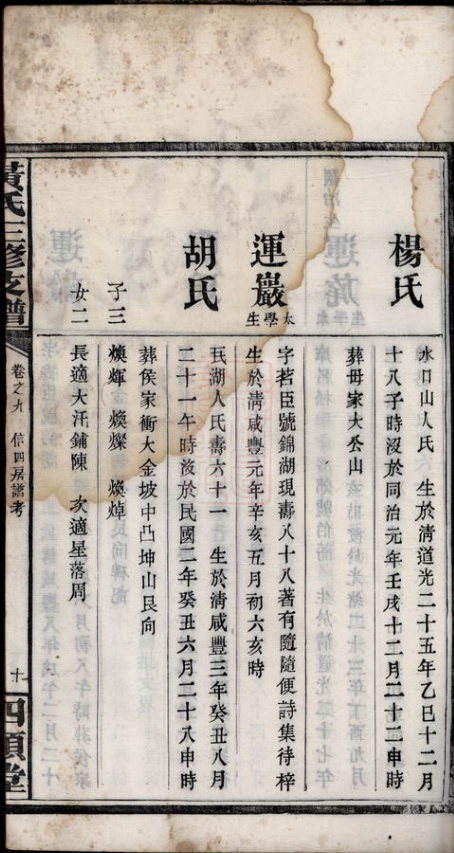 楊氏
水口山人氏 生於清道光二十五年乙巳十二月
十八子時沒於同治元年壬戌十二月二十二申時
葬毋家大岺山
運巖
太學生
字若臣號錦湖現壽八十八著有隨隨便詩集待梓
生於清咸豐元年辛亥五月初六亥時
胡氏
氏湖人氏壽六十一 生於清咸豐三年癸丑八月
二十一午時沒於民國二年癸丑六月二十八申時
葬侯家衝大金坡中凸坤山艮向
子三
煥煇 煥燦 煥焯
女二
長適大汗鋪陳 次適星落周
黃氏三修支譜
卷之九 信四房譜考
十
四順堂